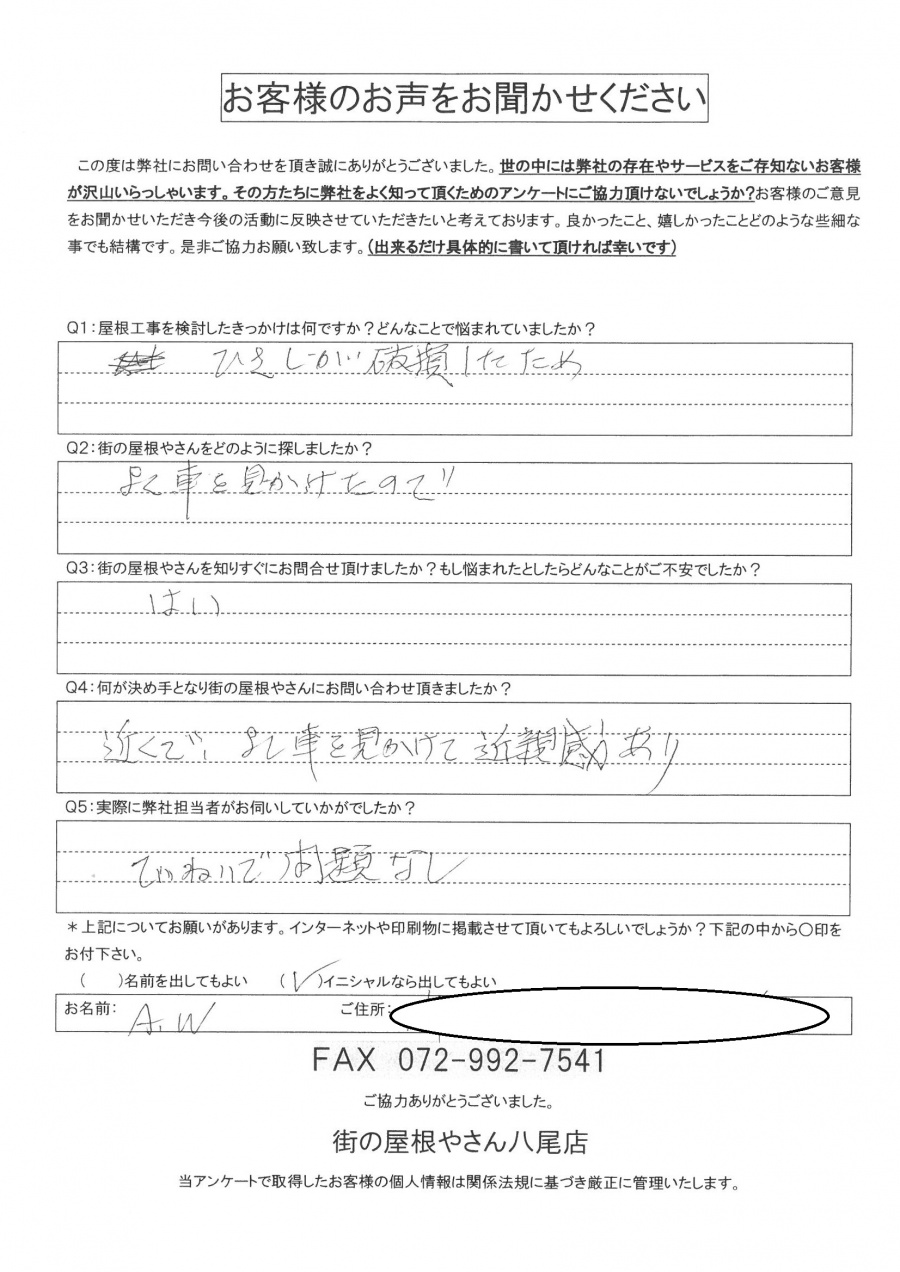 お客様のお声をお聞かせください
この度は弊社にお問い合わせを頂き誠にありがとうございました。世の中には弊社の存在やサービスをご存知ないお客様
が沢山いらっしゃいます。その方たちに弊社をよく知って頂くためのアンケートにご協力頂けないでしょうか?お客様のご意見
をお聞かせいただき今後の活動に反映させていただきたいと考えております。良かったこと、嬉しかったことどのような些細な
事でも結構です。是非ご協力お願い致します。(出来るだけ具体的に書いて頂ければ幸いです)
Q1:屋根工事を検討したきっかけは何ですか?どんなことで悩まれていましたか?
ひさしが破損したため
Q2:街の屋根やさんをどのように探しましたか?
よく車を見かけたので
Q3:街の屋根やさんを知りすぐにお問合せ頂けましたか?もし悩まれたとしたらどんなことがご不安でしたか?
はい
Q4:何が決め手となり街の屋根やさんにお問い合わせ頂きましたか?
近くで、よく車を見かけて近親感あり
Q5:実際に弊社担当者がお伺いしていかがでしたか?
ていねいで問題なし
*上記についてお願いがあります。インターネットや印刷物に掲載させて頂いてもよろしいでしょうか?下記の中から〇印を
お付下さい。
( )名前を出してもよい (✓)イニシャルなら出してもよい
お名前: A.W ご住所:
FAX 072-992-7541
ご協力ありがとうございました。
街の屋根やさん八尾店
当アンケートで取得したお客様の個人情報は関係法規に基づき厳正に管理いたします。